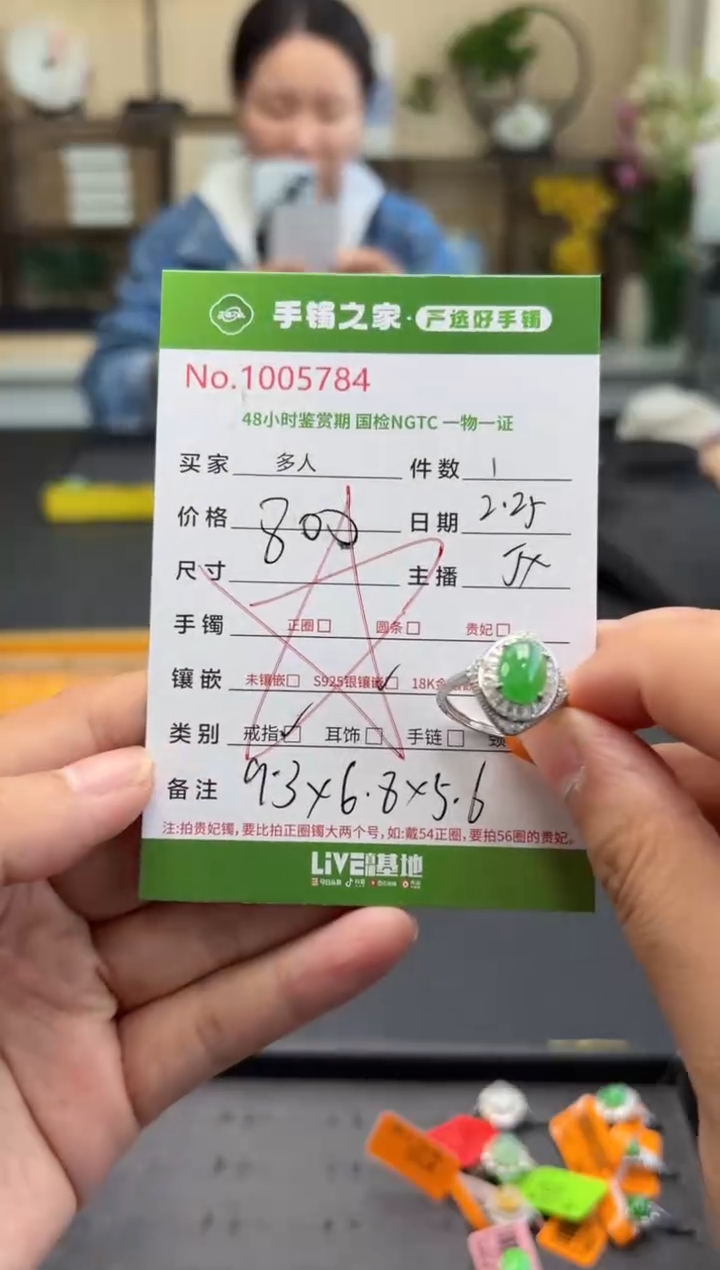 手镯之家·严选好手镯
No.1005784
48小时鉴赏期 国检NGTC 一物一证
买家 多人 件数 1
价格 800 日期 2.25
尺寸 主播 JX
手镯 正圈□ 圆条□ 贵妃□
镶嵌 未镶嵌□ S925银镶嵌□ 18K金
类别 戒指□ 耳饰□ 手链□ 颈
备注 9.3×6.8×5.6
注:拍贵妃镯,要比拍正圈镯大两个号,如:戴54正圈,要拍56圈的贵妃。
LiVE 基地